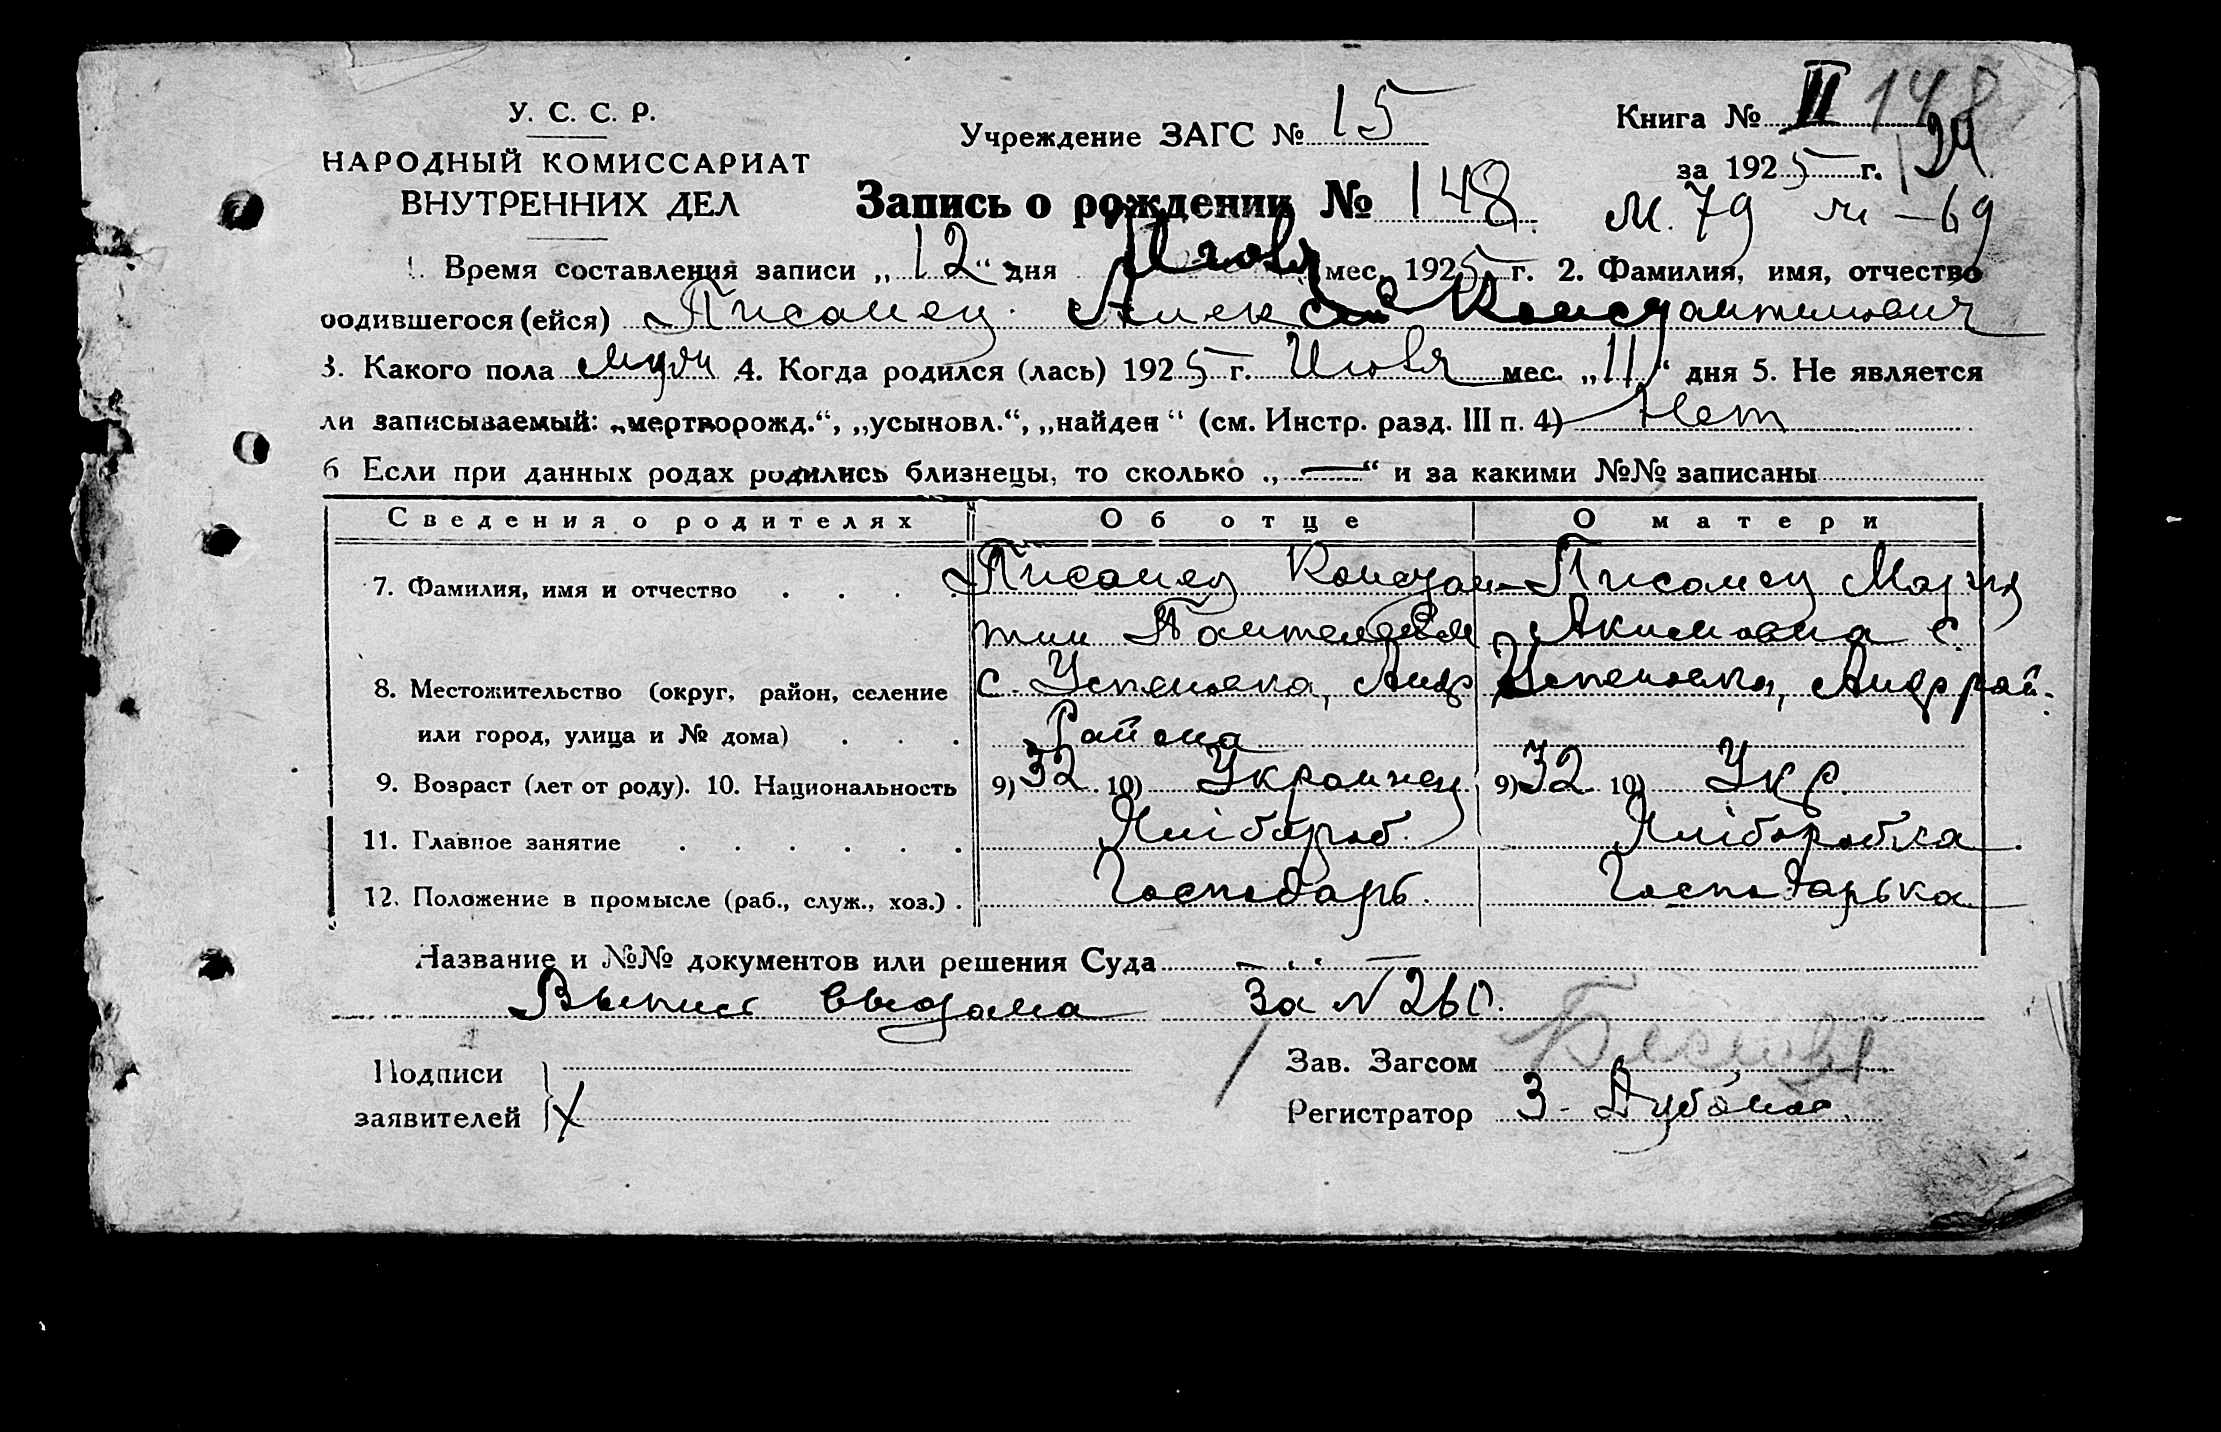 У. С. С. Р.
НАРОДНЫЙ КОМИССАРИАТ
ВНУТРЕННИХ ДЕЛ
Учреждение ЗАГС № 15
Книга № II 148
за 1925 г.
Запись о рождении № 148
М. 79 м - 69
1. Время составления записи „12“ дня Июля мес. 1925 г. 2. Фамилия, имя, отчество
родившегося (ейся) Писанец Алексей Константинович
3. Какого пола муж 4. Когда родился (лась) 1925 г. Июля мес. „11“ дня 5. Не является
ли записываемый: „мертворожд.“, „усыновл.“, „найден“ (см. Инстр. разд. III п. 4) Нет
6 Если при данных родах родились близнецы, то сколько „—“ и за какими №№ записаны
Сведения о родителях Об отце О матери
7. Фамилия, имя и отчество Писанец Констан- Писанец Мария
тин Пантелейм Акимовна с.
8. Местожительство (округ, район, селение с. Успеновка, Андр Успеновка, Андр рай.
или город, улица и № дома) Района
9. Возраст (лет от роду). 10. Национальность 9) 32 10) Украинец 9) 32 10) Укр.
11. Главное занятие Хлібороб. Хліборобка
12. Положение в промысле (раб., служ., хоз.) Господарь. Господарька
Название и №№ документов или решения Суда
Выпись выдана за № 260.
Подписи
заявителей Х
Зав. Загсом
Регистратор З. Дубо